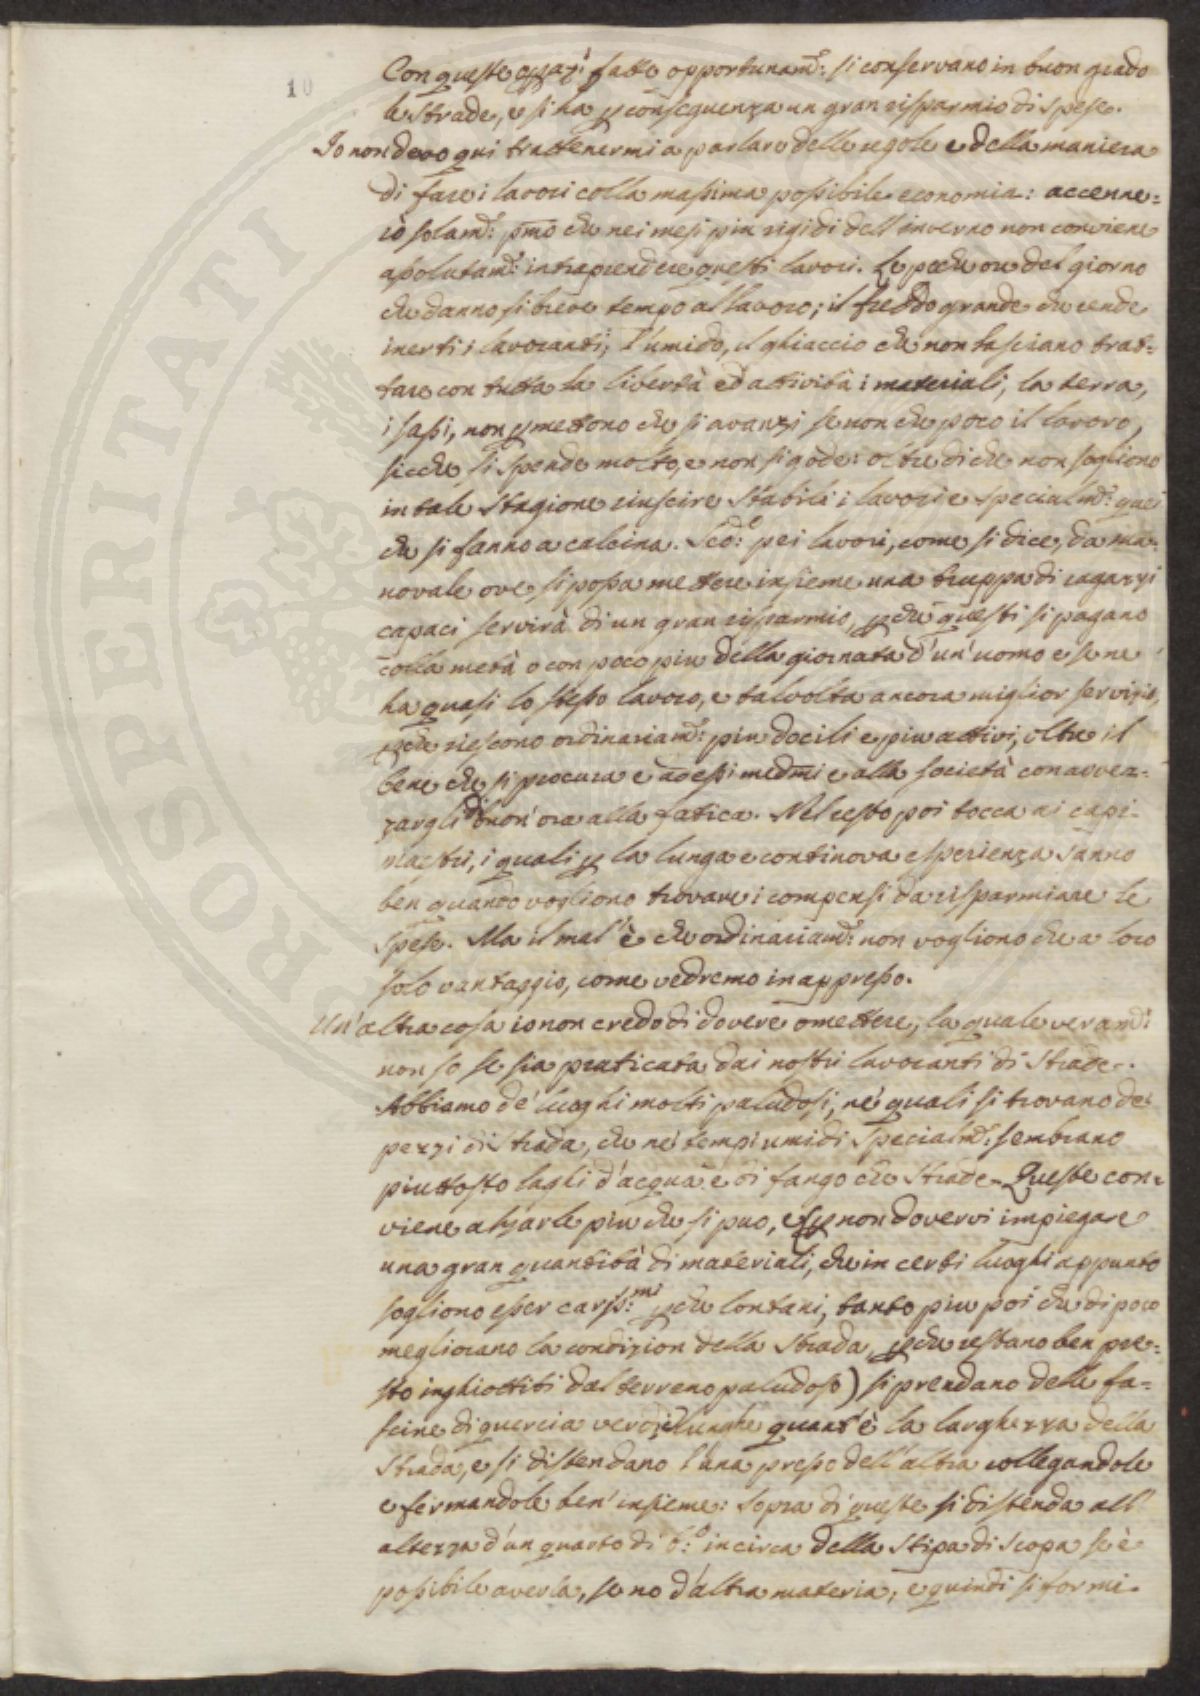 10
Con queste operaz.i fatte opportunam.e: si conservano in buon grado
le strade, e si ha p conseguenza un gran risparmio di spese.
Io non devo qui trattenermi a parlare delle regole e della maniera
di fare i lavori colla massima possibile economia: accenne=
rò solam.e: pmo che nei mesi più rigidi dell'inverno non conviene
assolutam.e: intraprendere questi lavori. Le poche ore del giorno
che danno sì breve tempo al lavoro; il freddo grande che rende
inerti i lavoranti; l'umido, il ghiaccio che non lasciano trat=
tare con tutta la libertà ed attività i materiali, la terra,
i sassi, non pmettono che si avanzi se non che poco il lavoro,
sicche si spende molto, e non si gode: oltre di che non sogliono
in tale stagione riuscire stabili i lavori e specialm.e: quei
che si fanno a calcina. Scd.o: pei lavori, come si dice, da ma=
novale ove si possa mettere insieme una truppa di ragazzi
capaci servirà di un gran risparmio, pche questi si pagano
colla metà o con poco piu della giornata d'un'uomo e se ne
ha quasi lo stesso lavoro, e talvolta ancora miglior servizio,
pche riescono ordinariam.e: piu docili e piu attivi, oltre il
bene che si procura e ad essi medmi e alla società con avvez=
zargli di buon'ora alla fatica. Nel resto poi tocca ai capi=
maestri, i quali p la lunga e continova esperienza sanno
ben quando vogliono trovare i compensi da risparmiare le
spese. Ma il mal'è che ordinariam.e: non vogliono che a loro
solo vantaggio, come vedremo in appresso.
Un'altra cosa io non credo di dovere omettere, la quale veram.e:
non so se sia praticata dai nostri lavoranti di strade.
Abbiamo de' luoghi molti paludosi, ne' quali si trovano de'
pezzi di strada, che ne' tempi umidi specialm.e: sembrano
piuttosto laghi d'acqua e di fango che strade. Queste con=
viene alzarle piu che si può, e p non dovervi impiegare
una gran quantità di materiali, che in certi luoghi appunto
sogliono esser cariss.mi: pche lontani, tanto piu poi che di poco
megliorano la condizion della strada, pche restano ben pre=
sto inghiottiti dal terreno paludoso) si prendano delle fa=
scine di quercia verdi lunghe quant'è la larghezza della
strada, e si distendano l'una presso dell'altra collegandole
e fermandole ben'insieme: sopra di queste si distenda all'
altezza d'un quarto di b.o: incirca della stipa di scopa se è
possibile averla, se no d'altra materia, e quindi si formi